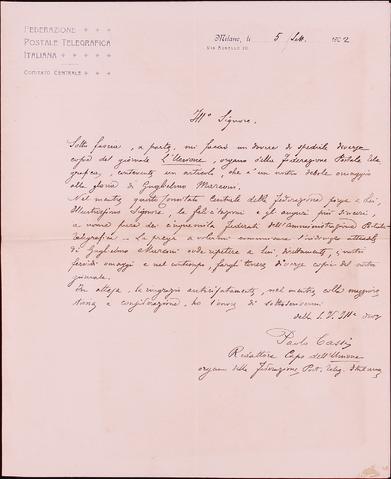 FEDERAZIONE
POSTALE TELEGRAFICA
ITALIANA
COMITATO CENTRALE
Milano, li 5 Sett. 1902
VIA AURELIO 10.
Ill.º Signore.
Sotto fascia, a parte, mi faccio un dovere di spedirle diverse
copie del giornale L'Unione, organo della Federazione Postale tele
grafica, contenenti un articolo, che è un nostro debole omaggio
alla gloria di Guglielmo Marconi.
Nel mentre questo Comitato Centrale della Federazione porge a Lei,
Illustrissimo Signore, le felicitazioni e gli auguri più sinceri,
a nome pure dei cinquemila federati dell'Amministrazione Postale
Telegrafica La prego a volermi comunicare l'indirizzo
di Guglielmo Marconi onde ripetere a Lui, direttamente, i nostri
fervidi omaggi e nel contempo, fargli tenere diverse copie del nostro
giornale.
In attesa, la ringrazio anticipatamente, nel mentre colla maggiore
stima e considerazione, ho l'onore di sottoscrivermi
della S. V. Ill.ma
Paolo
Redattore Capo dell'Unione
organo della Federazione Post. Teleg. Italiana